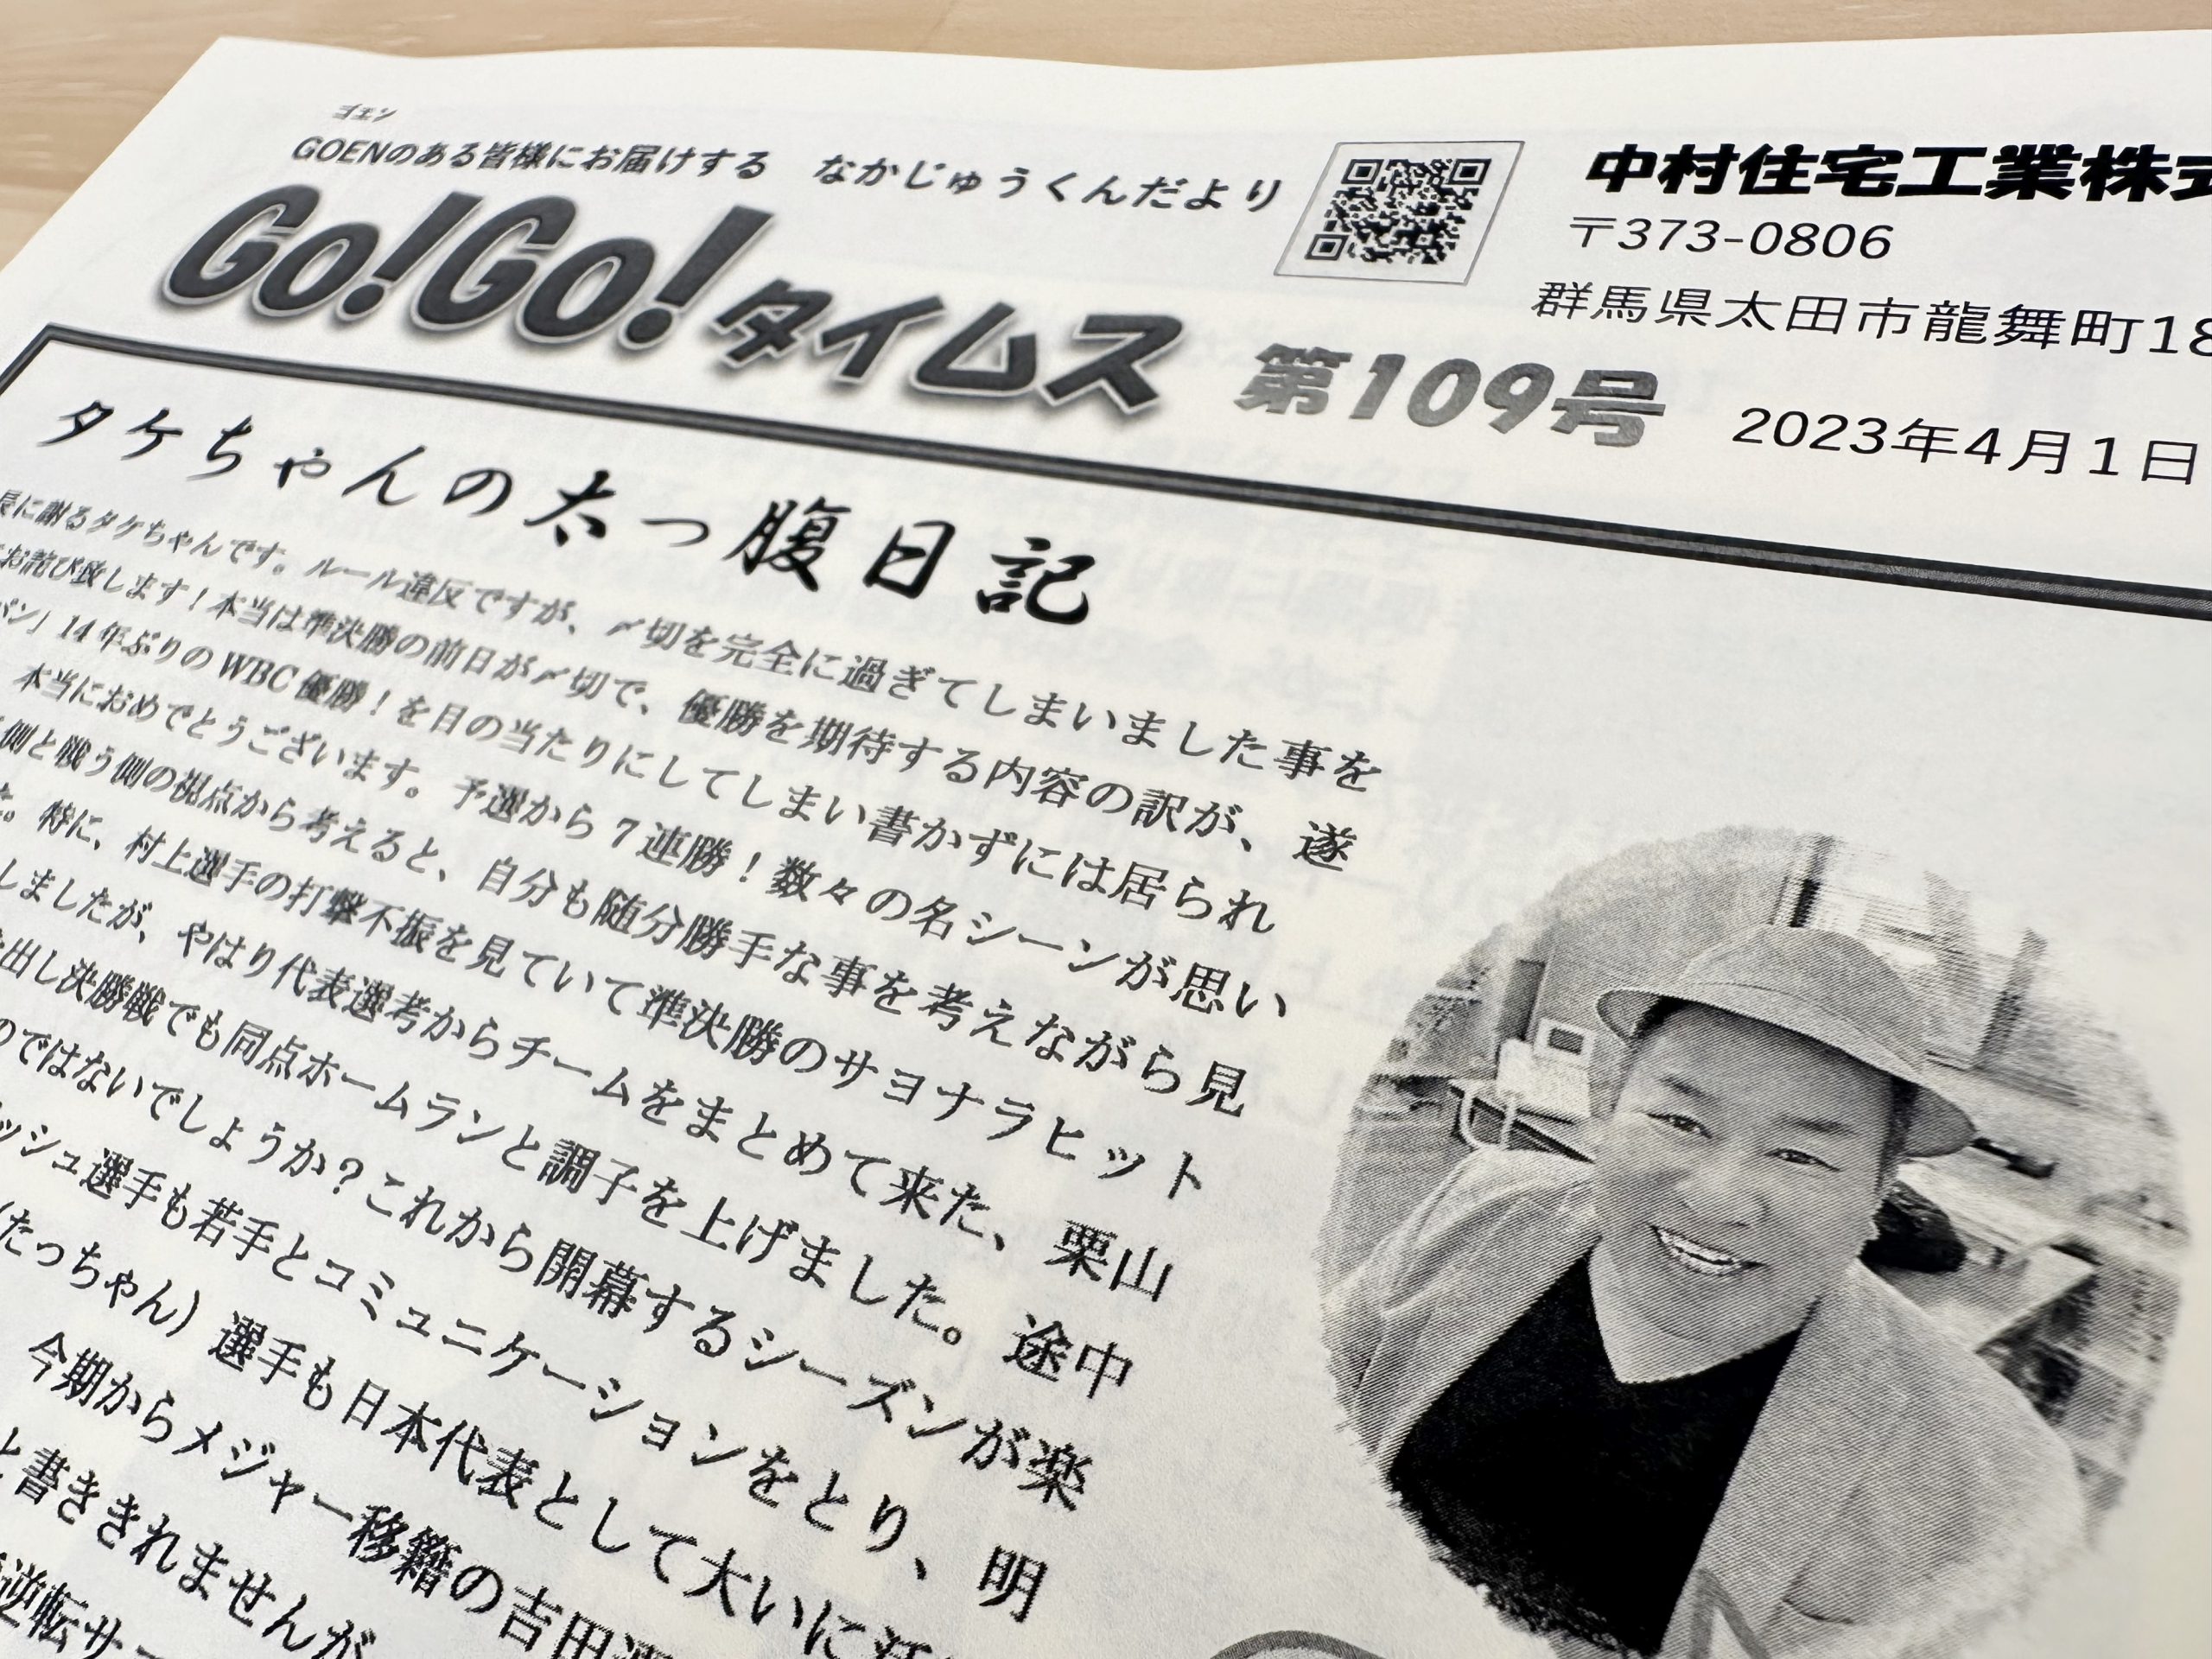 ゴエン
GOENのある皆様にお届けする　なかじゅうくんだより
Go!Go!タイムス 第109号
中村住宅工業株式
〒373-0806
群馬県太田市龍舞町18
2023年4月1日
タケちゃんの太っ腹日記
長に謝るタケちゃんです。ルール違反ですが、〆切を完全に過ぎてしまいました事を
お詫び致します！本当は準決勝の前日が〆切で、優勝を期待する内容の訳が、遂
パン」14年ぶりのWBC優勝！を目の当たりにしてしまい書かずには居られ
本当におめでとうございます。予選から7連勝！数々の名シーンが思い
側と戦う側の視点から考えると、自分も随分勝手な事を考えながら見
た。特に、村上選手の打撃不振を見ていて準決勝のサヨナラヒット
しましたが、やはり代表選考からチームをまとめて来た、栗山
出し決勝戦でも同点ホームランと調子を上げました。途中
のではないでしょうか？これから開幕するシーズンが楽
ッシュ選手も若手とコミュニケーションをとり、明
(たっちゃん）選手も日本代表として大いに活
今期からメジャー移籍の吉田選
と書ききれませんが
逆転サー